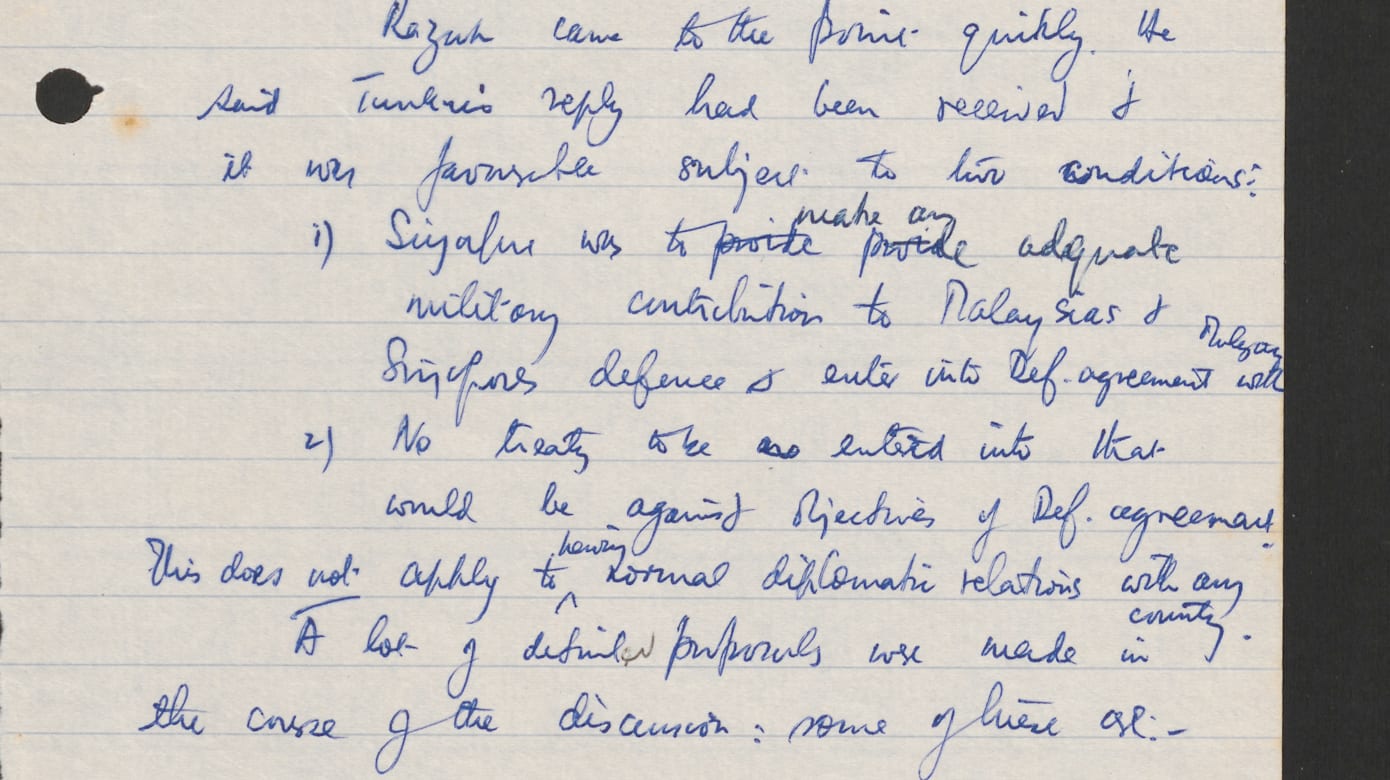 Razak came to the point quickly. He
said Tunku's reply had been received &
it was favourable subject to two conditions:
make any
1) Singapore was to provide provide adequate
military contribution to Malaysias &
Singapores defence & enter into Def. agreement with
Malaysia
2) No treaty to be entered into that
would be against objectives of Def. agreement.
having
This does not apply to normal diplomatic relations with any
country.
A lot of detailed proposals were made in
the course of the discussion: some of these are:-